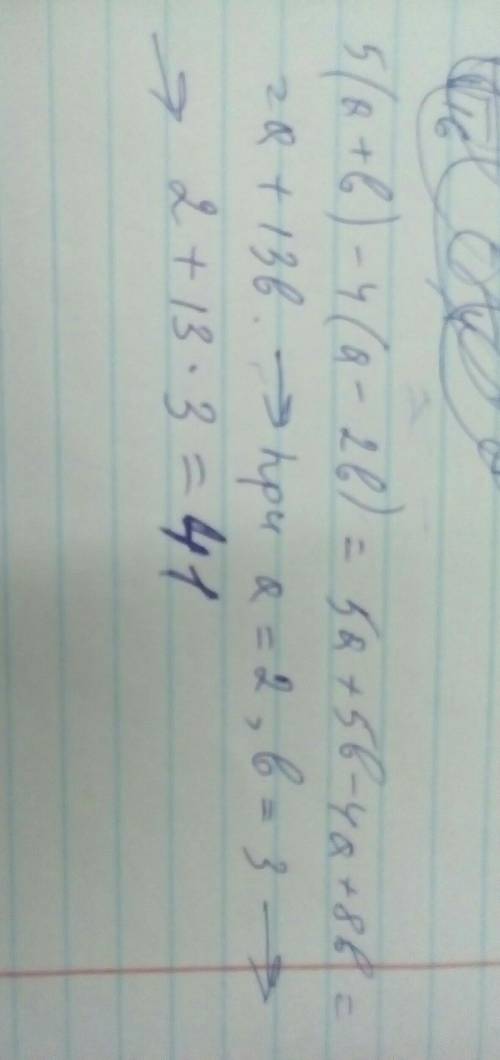 5(a + b) - 4(a - 2b) = 5a + 5b - 4a + 8b =
= a + 13b. → при a = 2, b = 3 →
→ 2 + 13 · 3 = 41